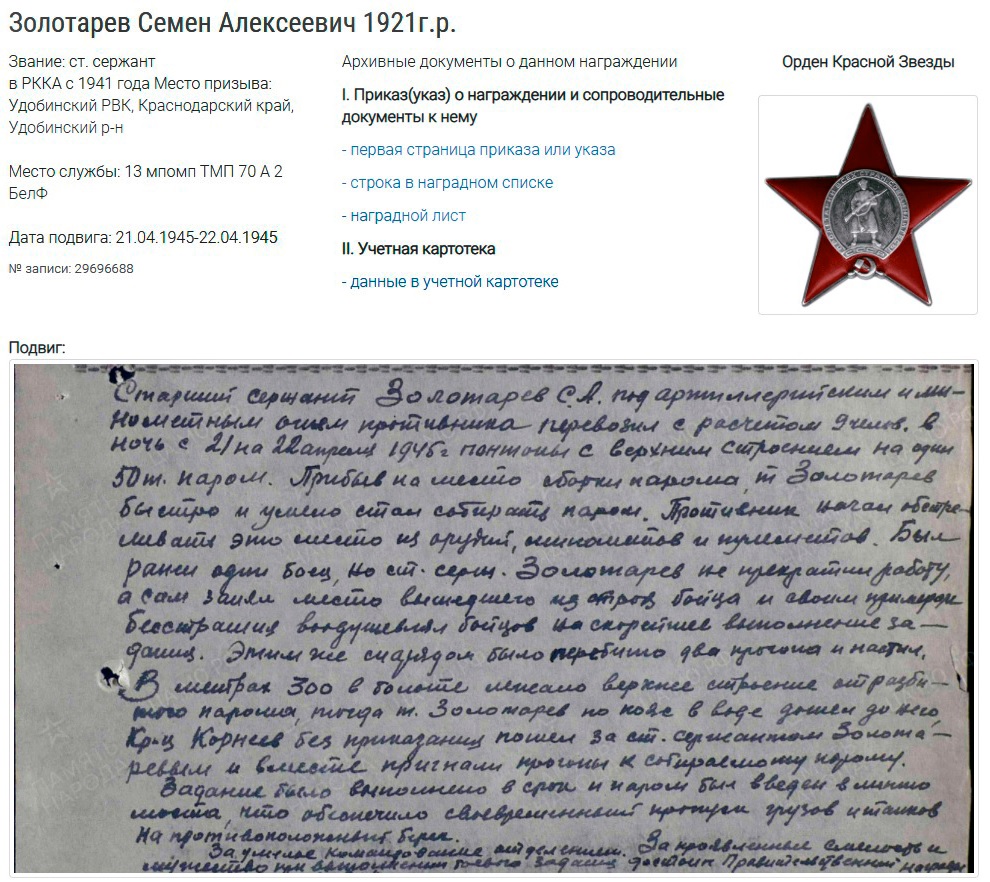 Золотарев Семен Алексеевич 1921г.р.
Звание: ст. сержант
в РККА с 1941 года Место призыва:
Удобинский РВК, Краснодарский край,
Удобинский р-н
Место службы: 13 мпомп ТМП 70 А 2
БелФ
Дата подвига: 21.04.1945-22.04.1945
№ записи: 29696688
Архивные документы о данном награждении
I. Приказ(указ) о награждении и сопроводительные
документы к нему
- первая страница приказа или указа
- строка в наградном списке
- наградной лист
II. Учетная картотека
- данные в учетной картотеке
Орден Красной Звезды
Подвиг:
Старший сержант Золотарев С.А. под артиллерийским и ми-
нометным огнем противника перевозил с расчетом 9 челов. в
ночь с 21 на 22 апреля 1945 г понтоны с верхним строением на один
50 т. паром. Прибыв на место сборки парома, т Золотарев
быстро и умело стал собирать паром. Противник начал обстре-
ливать это место из орудий, минометов и пулеметов. Был
ранен один боец, но ст. серж. Золотарев не прекратил работу,
а сам занял место вышедшего из строя бойца и своим примером
бесстрашия воодушевлял бойцов на скорейшее выполнение за-
дания. Этим же снарядом было перебито два прогона и настил.
В метрах 300 в болоте лежало верхнее строение от разби-
того парома, тогда т. Золотарев по пояс в воде дошел до него,
Кр-ц Корнеев без приказания пошел за ст. сержантом Золота-
ревым и вместе пригнали прогоны к собираемому парому.
Задание было выполнено в срок и паром был введен в линию
моста, что обеспечило своевременный пропуск грузов и танков
на противоположный берег.
За умелое командование отделением. За проявленные смелость и
мужество при выполнении боевого задания достоин Правительственной награды